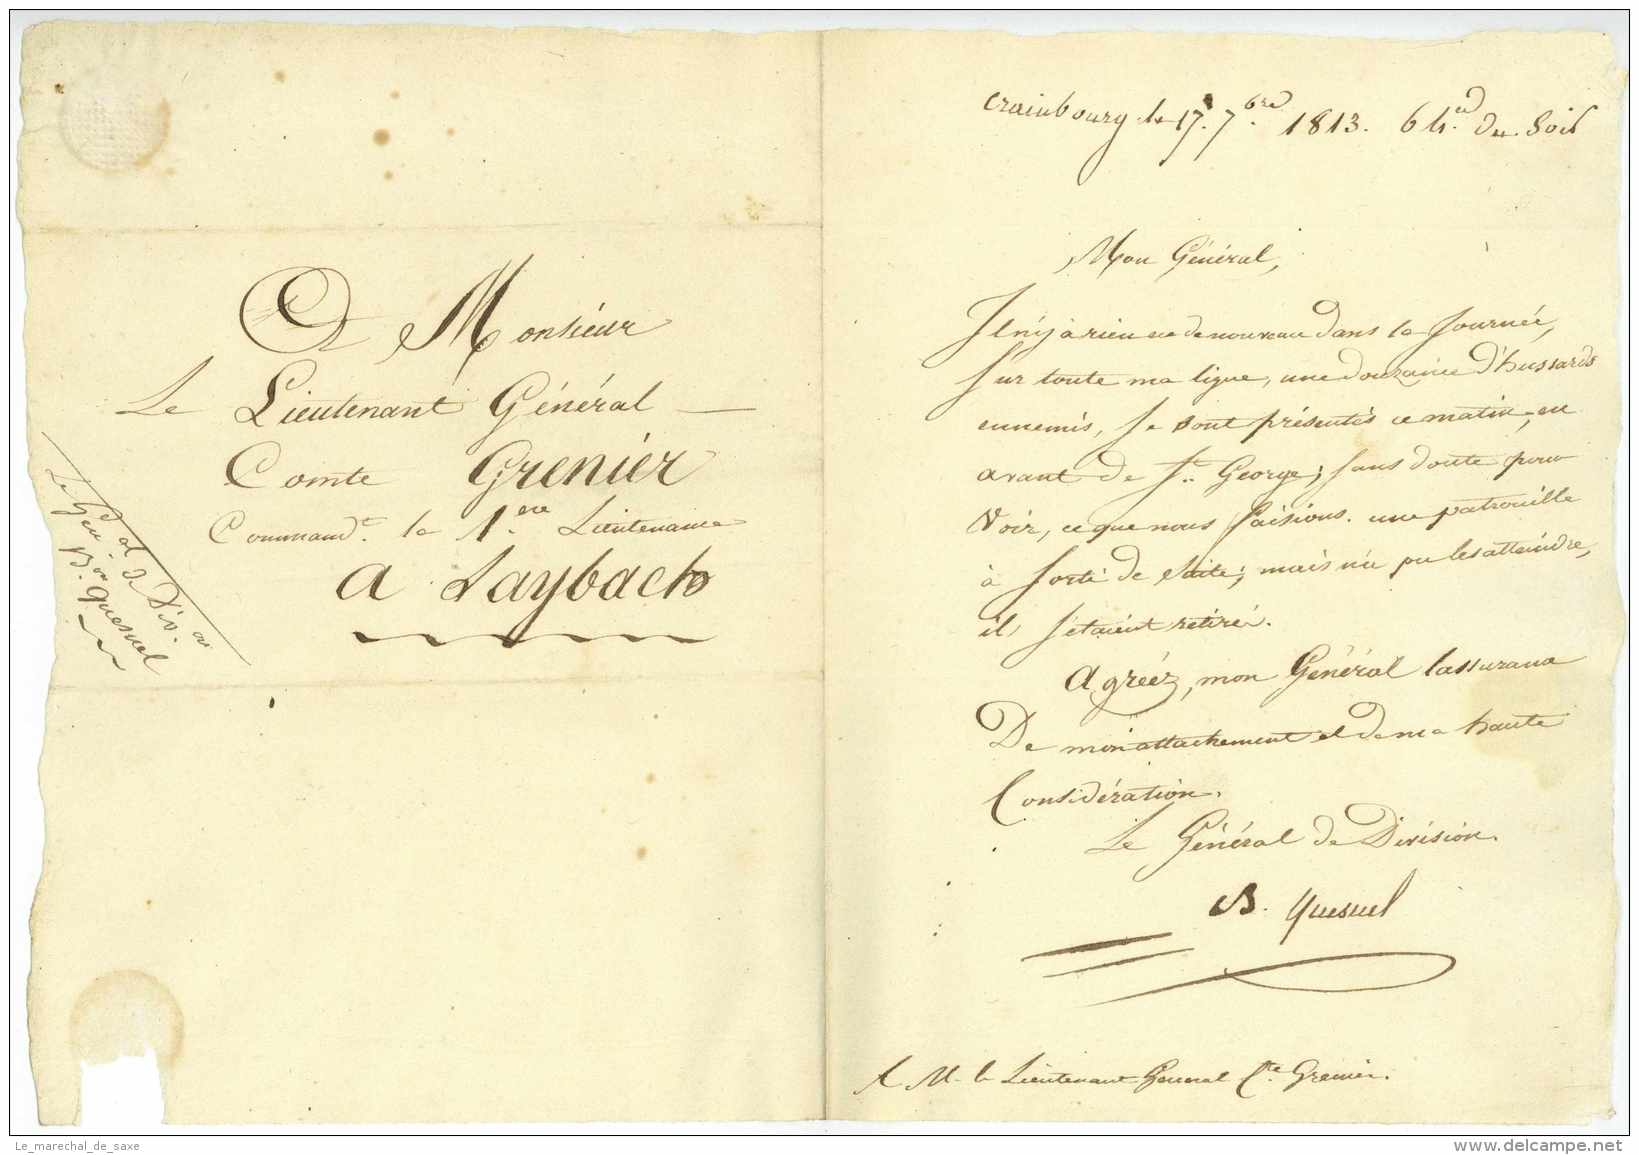 A Monsieur
Le Lieutenant Général
Comte Grenier
Command.t la 1.ere Lieutenance
a Laybach
Le Gen.al de Div.on
B.on Quesnel
Crainbourg le 17. 7.bre 1813. 6 h.es du Soir
Mon Général,
Il n'ij à rien eu de nouveau dans la Journée,
Sur toute ma ligne, une douzaine d'hussards
ennemis, Se sont présentés ce matin, en
avant de St. George; Sans doute pour
Voir, ce que nous faisions. une patrouille
à Sorti de Suite; mais n'a pu les atteindre,
ils S'etaient retirés.
Agréez, mon Général lassurance
De mon attachement et de ma haute
Considération.
Le Général de Division.
B. Quesnel
A M. le Lieutenant General C.te Grenier.
Le_marechal_de_saxe
www.delcampe.net